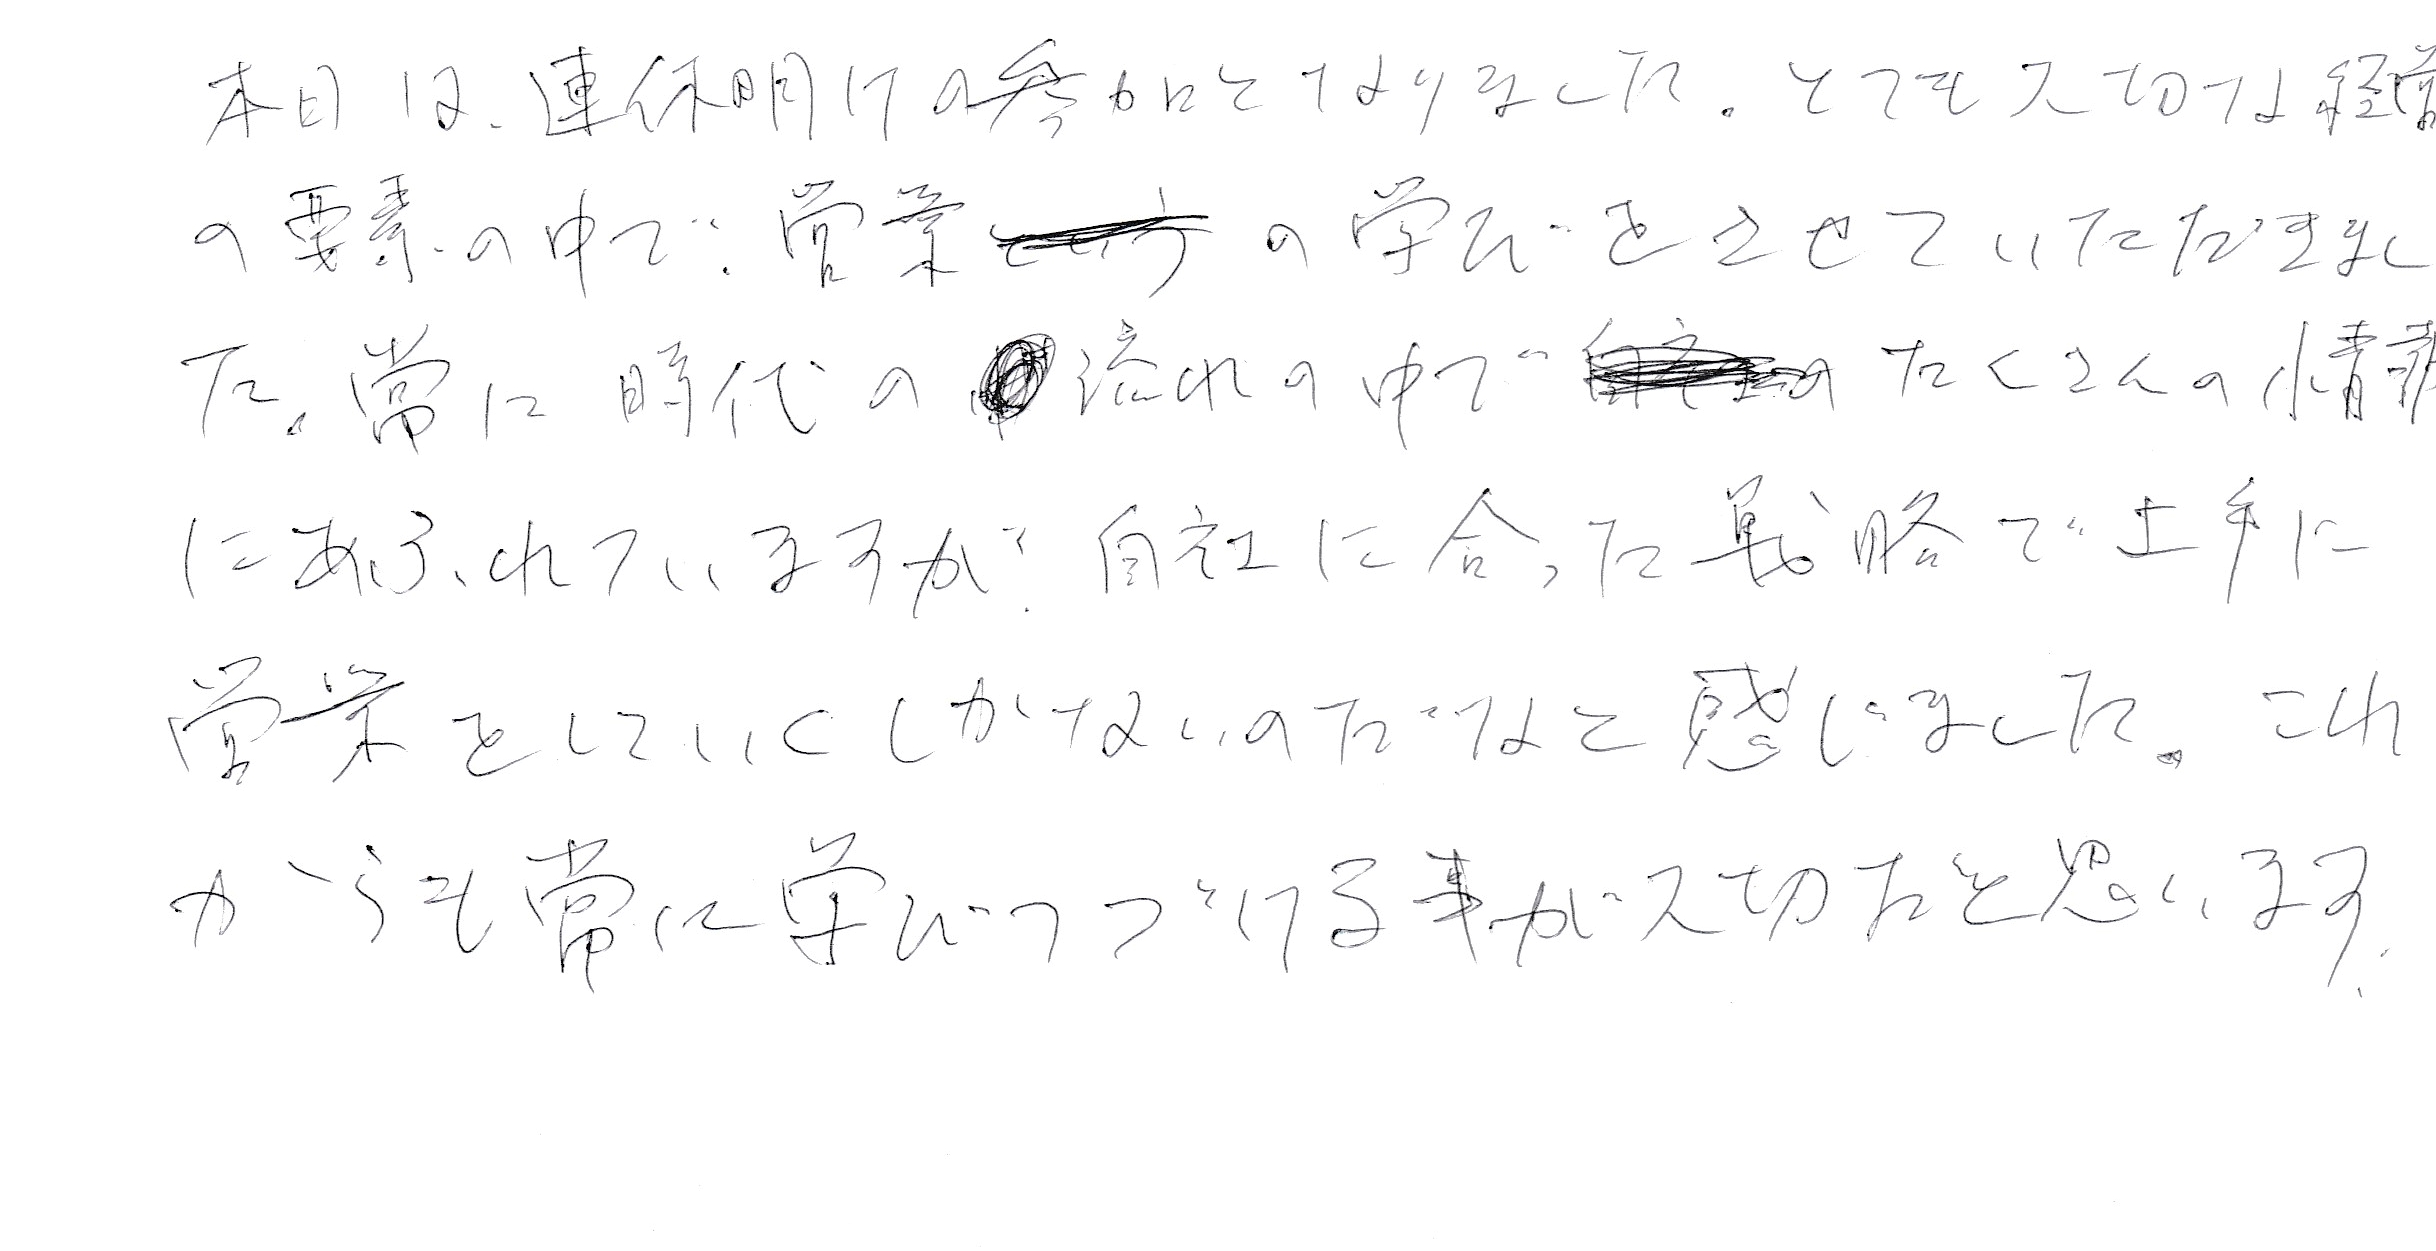 本日は、連休明けの参加となりました。とても大切な経営
の要素の中で、営業の学びをさせていただきまし
た。常に時代の流れの中でたくさんの情報
にあふれていますが、自社に合った戦略で上手に
営業をしていくしかないのだなと感じました。これ
からも常に学びつづける事が大切だと思います。